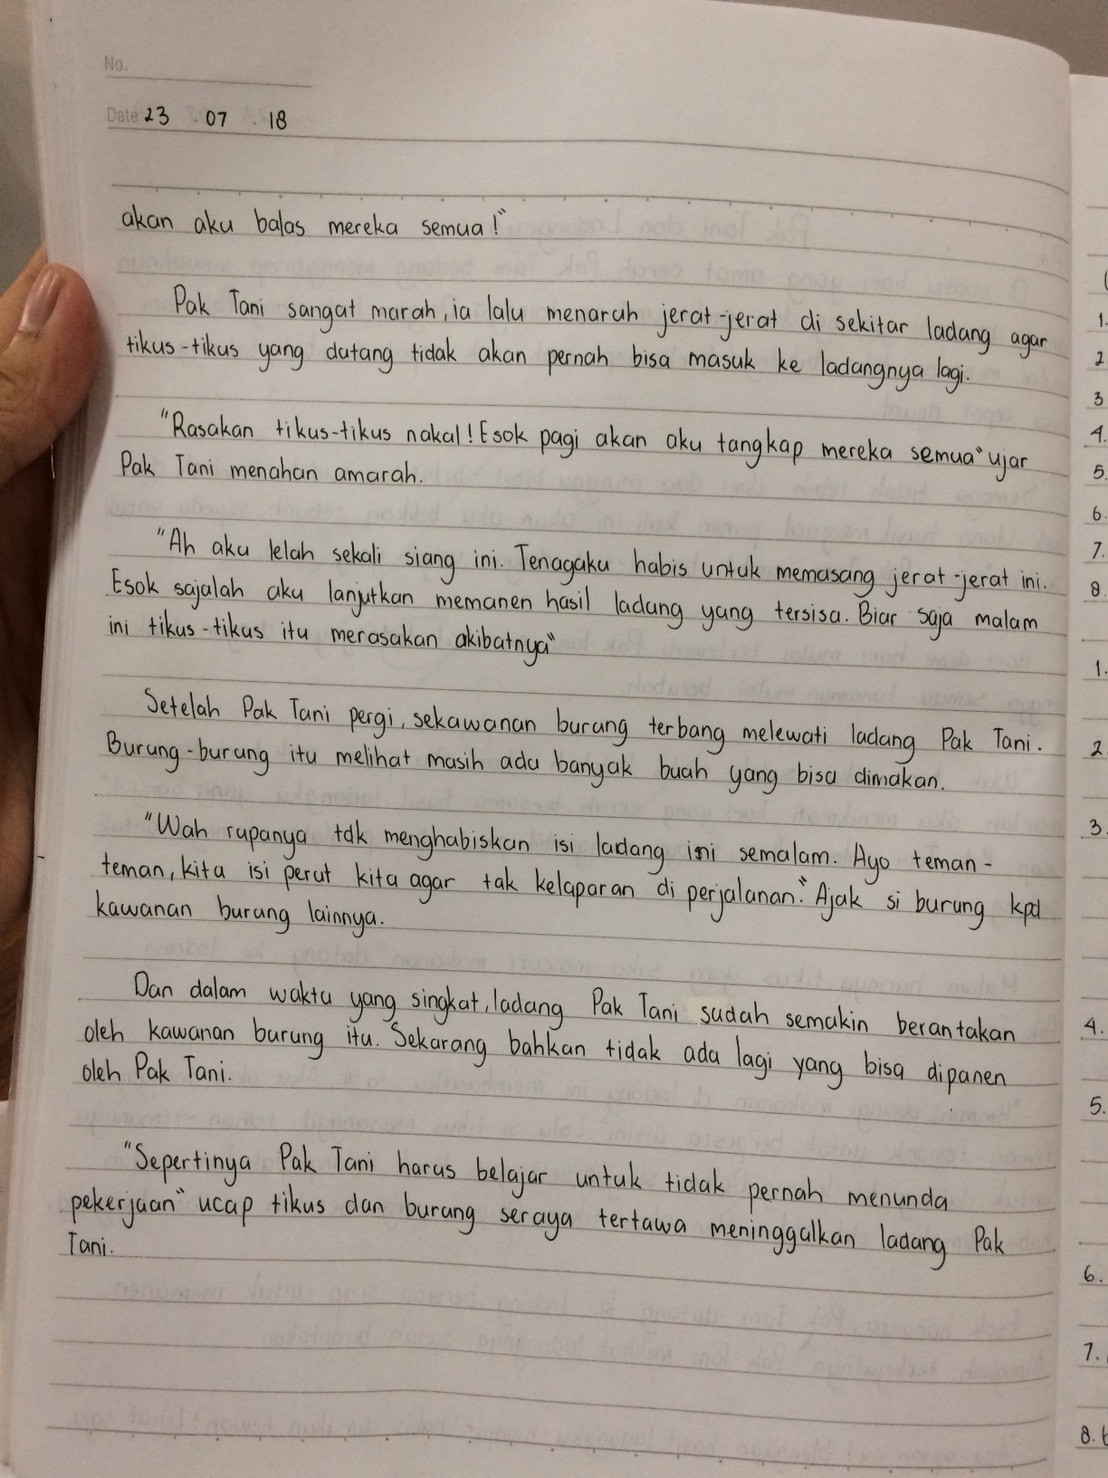 No.
Date 23 . 07 . 18
akan aku balas mereka semua!"
Pak Tani sangat marah, ia lalu menaruh jerat-jerat di sekitar ladang agar
tikus-tikus yang datang tidak akan pernah bisa masuk ke ladangnya lagi.
"Rasakan tikus-tikus nakal! Esok pagi akan aku tangkap mereka semua" ujar
Pak Tani menahan amarah.
"Ah aku lelah sekali siang ini. Tenagaku habis untuk memasang jerat-jerat ini.
Esok sajalah aku lanjutkan memanen hasil ladang yang tersisa. Biar saja malam
ini tikus-tikus itu merasakan akibatnya"
Setelah Pak Tani pergi, sekawanan burung terbang melewati ladang Pak Tani.
Burung-burung itu melihat masih ada banyak buah yang bisa dimakan.
"Wah rupanya tdk menghabiskan isi ladang ini semalam. Ayo teman-
teman, kita isi perut kita agar tak kelaparan di perjalanan." Ajak si burung kpd
kawanan burung lainnya.
Dan dalam waktu yang singkat, ladang Pak Tani sudah semakin berantakan
oleh kawanan burung itu. Sekarang bahkan tidak ada lagi yang bisa dipanen
oleh Pak Tani.
"Sepertinya Pak Tani harus belajar untuk tidak pernah menunda
pekerjaan" ucap tikus dan burung seraya tertawa meninggalkan ladang Pak
Tani.
1.
2
3
4.
5.
6.
7.
8.
1.
2
3.
4.
5.
6.
7.
8.